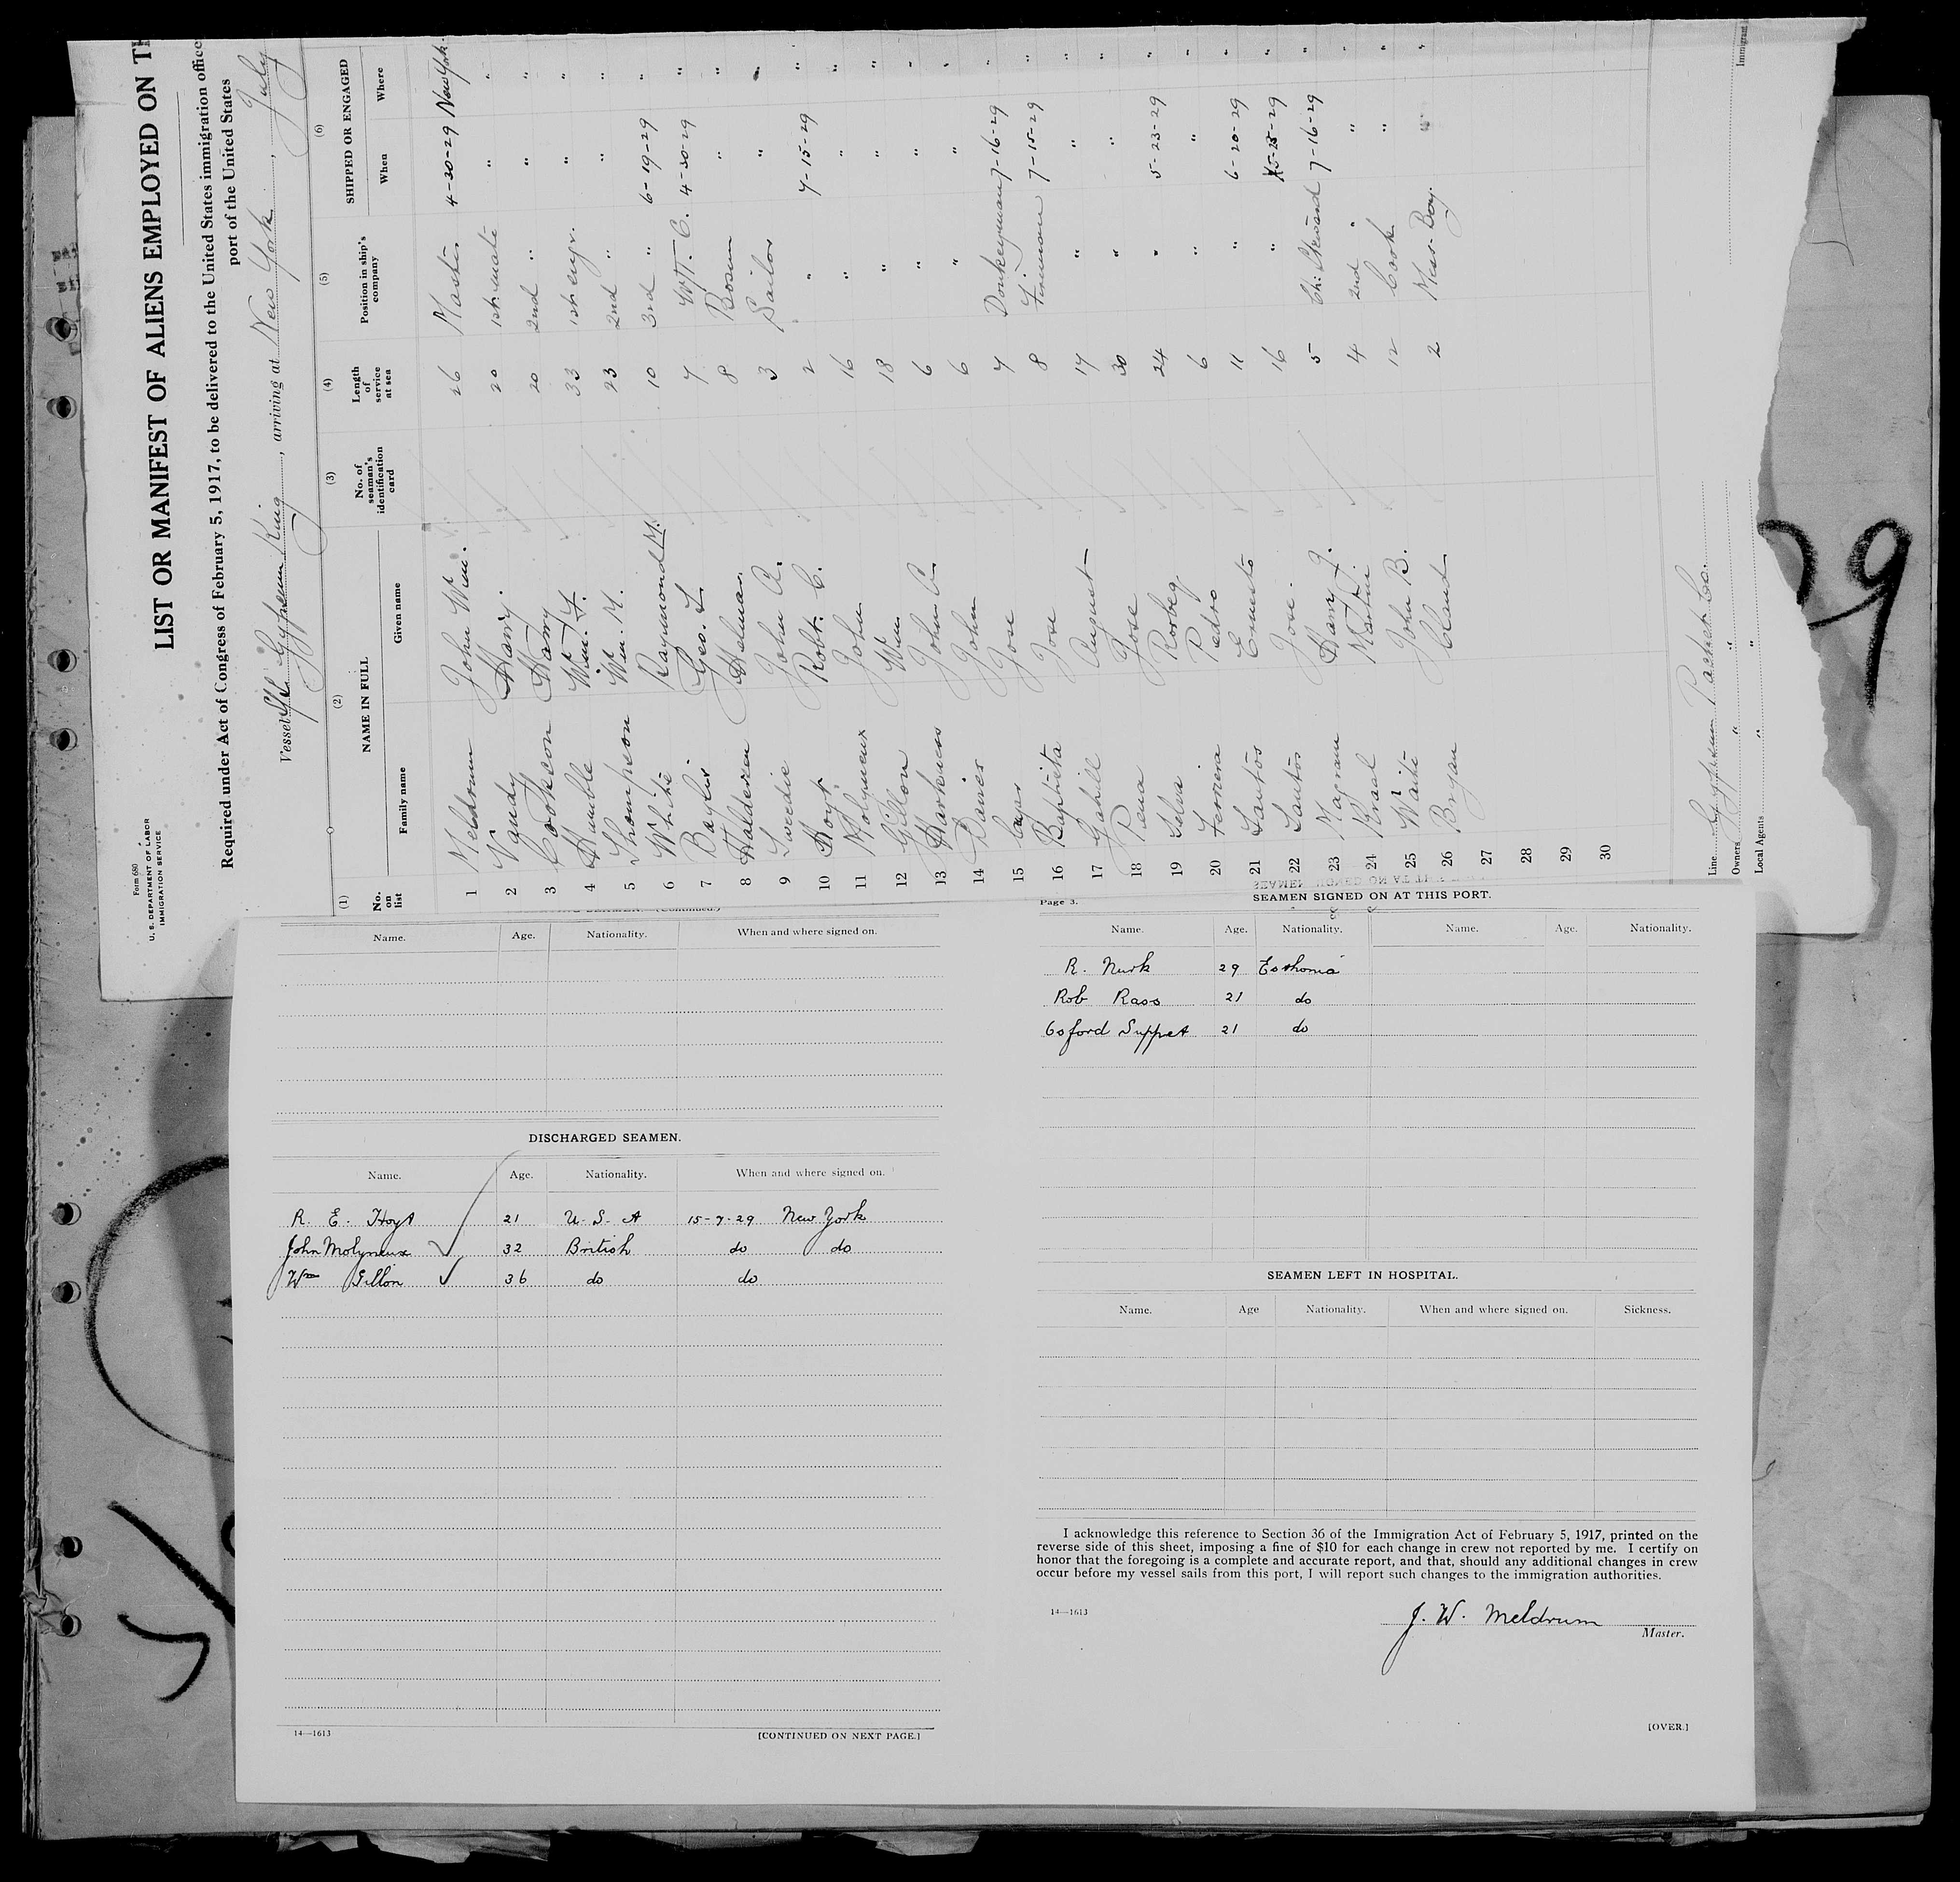 Form 680
U. S. DEPARTMENT OF LABOR
IMMIGRATION SERVICE
LIST OR MANIFEST OF ALIENS EMPLOYED ON TH
Required under Act of Congress of February 5, 1917, to be delivered to the United States immigration office
port of the United States
Vessel Gypsum King, arriving at New York, July
(1) (2) (3) (4) (5) (6)
No. on list NAME IN FULL No. of seaman's identification card Length of service at sea Position in ship's company SHIPPED OR ENGAGED
Family name Given name When Where
1 Meldrum John Wm. 26 Master 4-30-29 New York.
2 Vandy Harry. 20 1st mate " "
3 Cookson Harry 20 2nd " " "
4 Humble Wm. F. 33 1st engr. " "
5 Thompson Wm. M. 23 2nd " " "
6 White Raymond M. 10 3rd " 6-19-29 "
7 Baylis Geo. L. 7 W.T.O. 4-30-29 "
8 Halderen 8 Bosun " "
9 Swedie John A. 3 Sailor " "
10 Hoyt Robt. E. 2 " 7-15-29 "
11 Molyneux John 16 " " "
12 Gillon Wm 18 " " "
13 Harkness John A. 6 " " "
14 John 6 " " "
15 Jose 7 Donkeyman 7-16-29 "
16 Baptista Jose 8 Fireman 7-15-29 "
17 Gahill August 17 " " "
18 Pena Jose 30 " " "
19 Silva 24 " 5-23-29 "
20 Ferreira Pedro 6 " " "
21 Santos Ernesto 11 " 6-20-29 "
22 Santos Jose. 16 " "
23 Magram Harry J. 5 Ch: Steward 7-16-29 "
24 Kraal Martin 4 2nd " " "
25 Waite John B. 12 Cook " "
26 Bryan Claud 2 Mess-Boy. " "
27
28
29
30
Line Gypsum Packet Co.
Owners " "
Local Agents " "
Immigrant
29
Name. Age. Nationality. When and where signed on.
DISCHARGED SEAMEN.
Name. Age. Nationality. When and where signed on.
R. E. Hoyt 21 U. S. A 15-7-29 New York
John Molyneux 32 British do do
Wm Gillon 36 do do
14—1613 [CONTINUED ON NEXT PAGE.]
Page 3.
SEAMEN SIGNED ON AT THIS PORT.
Name. Age. Nationality. Name. Age. Nationality.
R. Nurk 29 Esthonia
Rob Rass 21 do
Osford Suppet 21 do
SEAMEN LEFT IN HOSPITAL.
Name. Age Nationality. When and where signed on. Sickness.
I acknowledge this reference to Section 36 of the Immigration Act of February 5, 1917, printed on the
reverse side of this sheet, imposing a fine of $10 for each change in crew not reported by me. I certify on
honor that the foregoing is a complete and accurate report, and that, should any additional changes in crew
occur before my vessel sails from this port, I will report such changes to the immigration authorities.
14—1613
J. W. Meldrum
Master.
[OVER.]